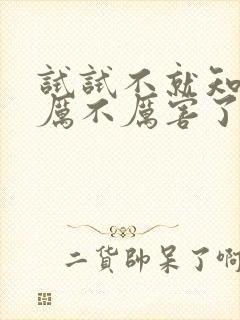 試試不就知
厲不厲害了
二貨帥呆了啊